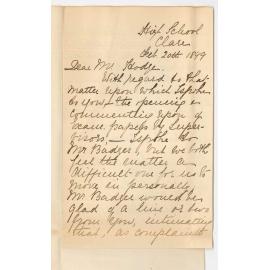 High School
Clare
Oct 20th 1899
Dear Mr Hodge
With regard to that
matter upon which I spoke
to you — the opening &
commenting upon of
exam. papers by Super-
visors — I spoke to
Mr Badger, but we both
feel the matter a
difficult one for us to
move in personally.
Mr Badger would be
glad of a line or two
from you, intimating
that, as complaints